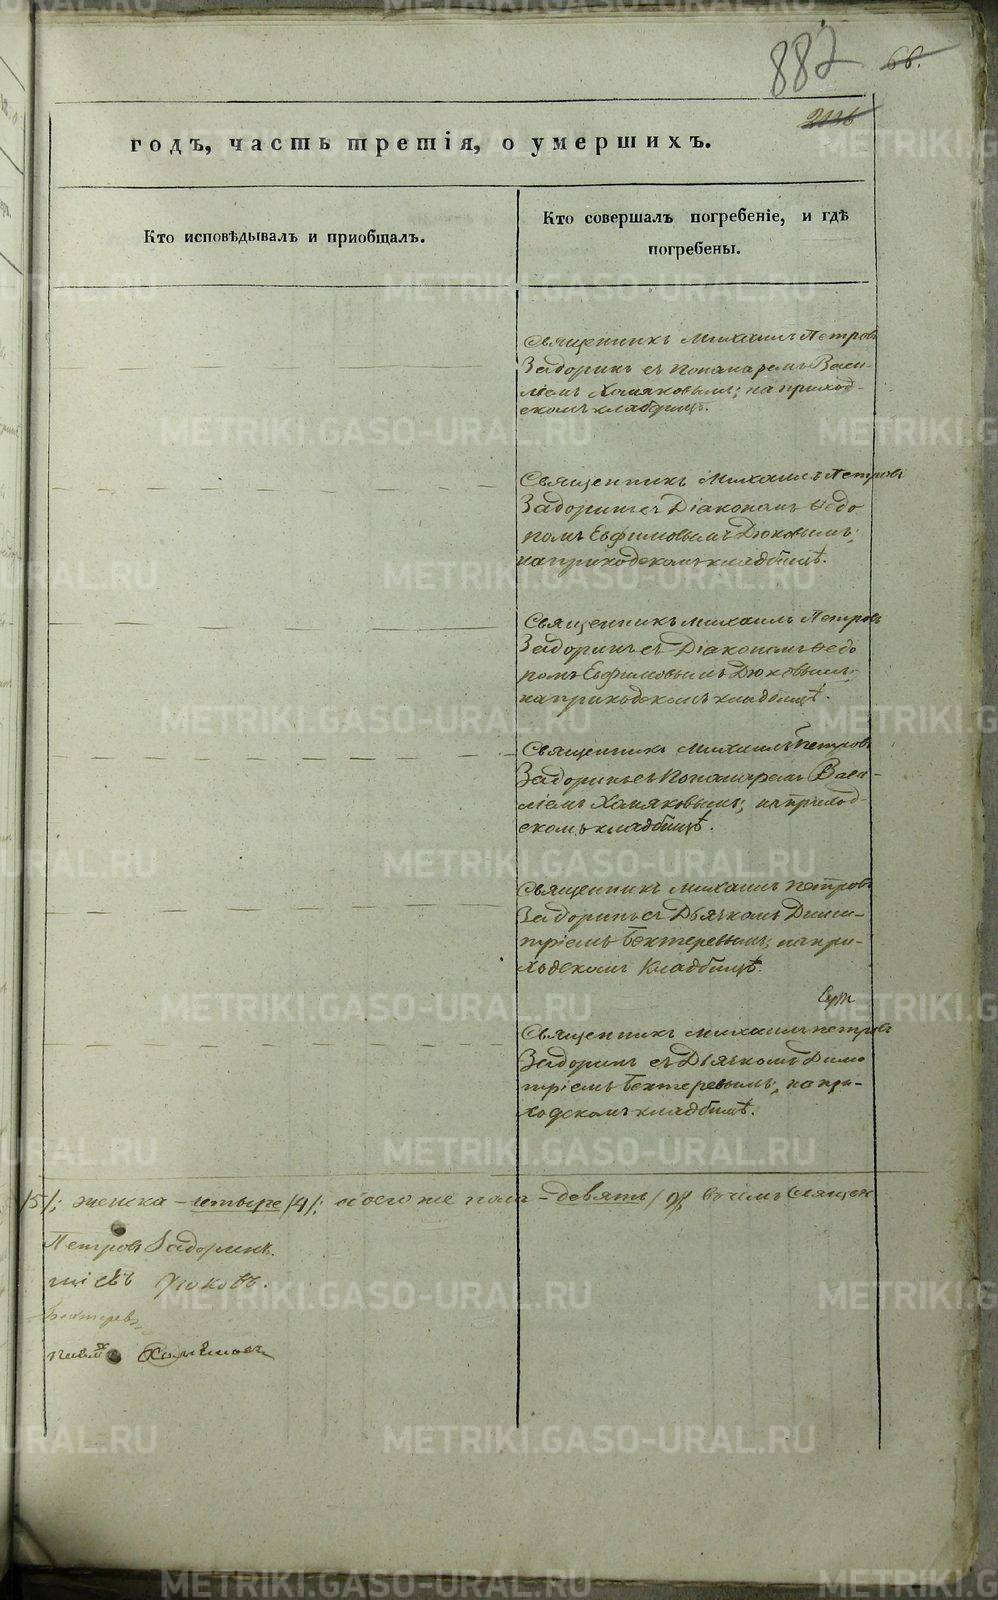 882 66.
2116
годъ, часть третія, о умершихъ.
Кто исповѣдывалъ и приобщалъ.
Кто совершалъ погребеніе, и гдѣ
погребены.
Священникъ Михаилъ Петровъ
Задоринъ съ Пономаремъ Васи-
ліемъ Хомяковымъ; на приход-
скомъ кладбищѣ.
Священникъ Михаилъ Петровъ
Задоринъ съ Діакономъ Ѳедо
ромъ Евфимовымъ Дюковымъ;
на приходскомъ кладбищѣ.
Священникъ Михаилъ Петровъ
Задоринъ съ Діакономъ Ѳедо
ромъ Евфимовымъ Дюковымъ;
на приходскомъ кладбищѣ.
Священникъ Михаилъ Петровъ
Задоринъ съ Пономаремъ Васи-
ліемъ Хомяковымъ; на приход-
скомъ кладбищѣ.
Священникъ Михаилъ Петровъ
Задоринъ съ Дьячкомъ Дими-
тріемъ Бехтеревымъ; на при-
ходскомъ кладбищѣ.
Священникъ Михаилъ Петровъ
Задоринъ съ Дьячкомъ Дими
тріемъ Бехтеревымъ; на при-
ходскомъ кладбищѣ.
/5/; женска – четыре /4/; обоего же пола – девять /9/; въ чемъ Священ
Петровъ Задоринъ.
Дюковъ.
Бехтерев
Хомяковъ
METRIKI.GASO-URAL.RU